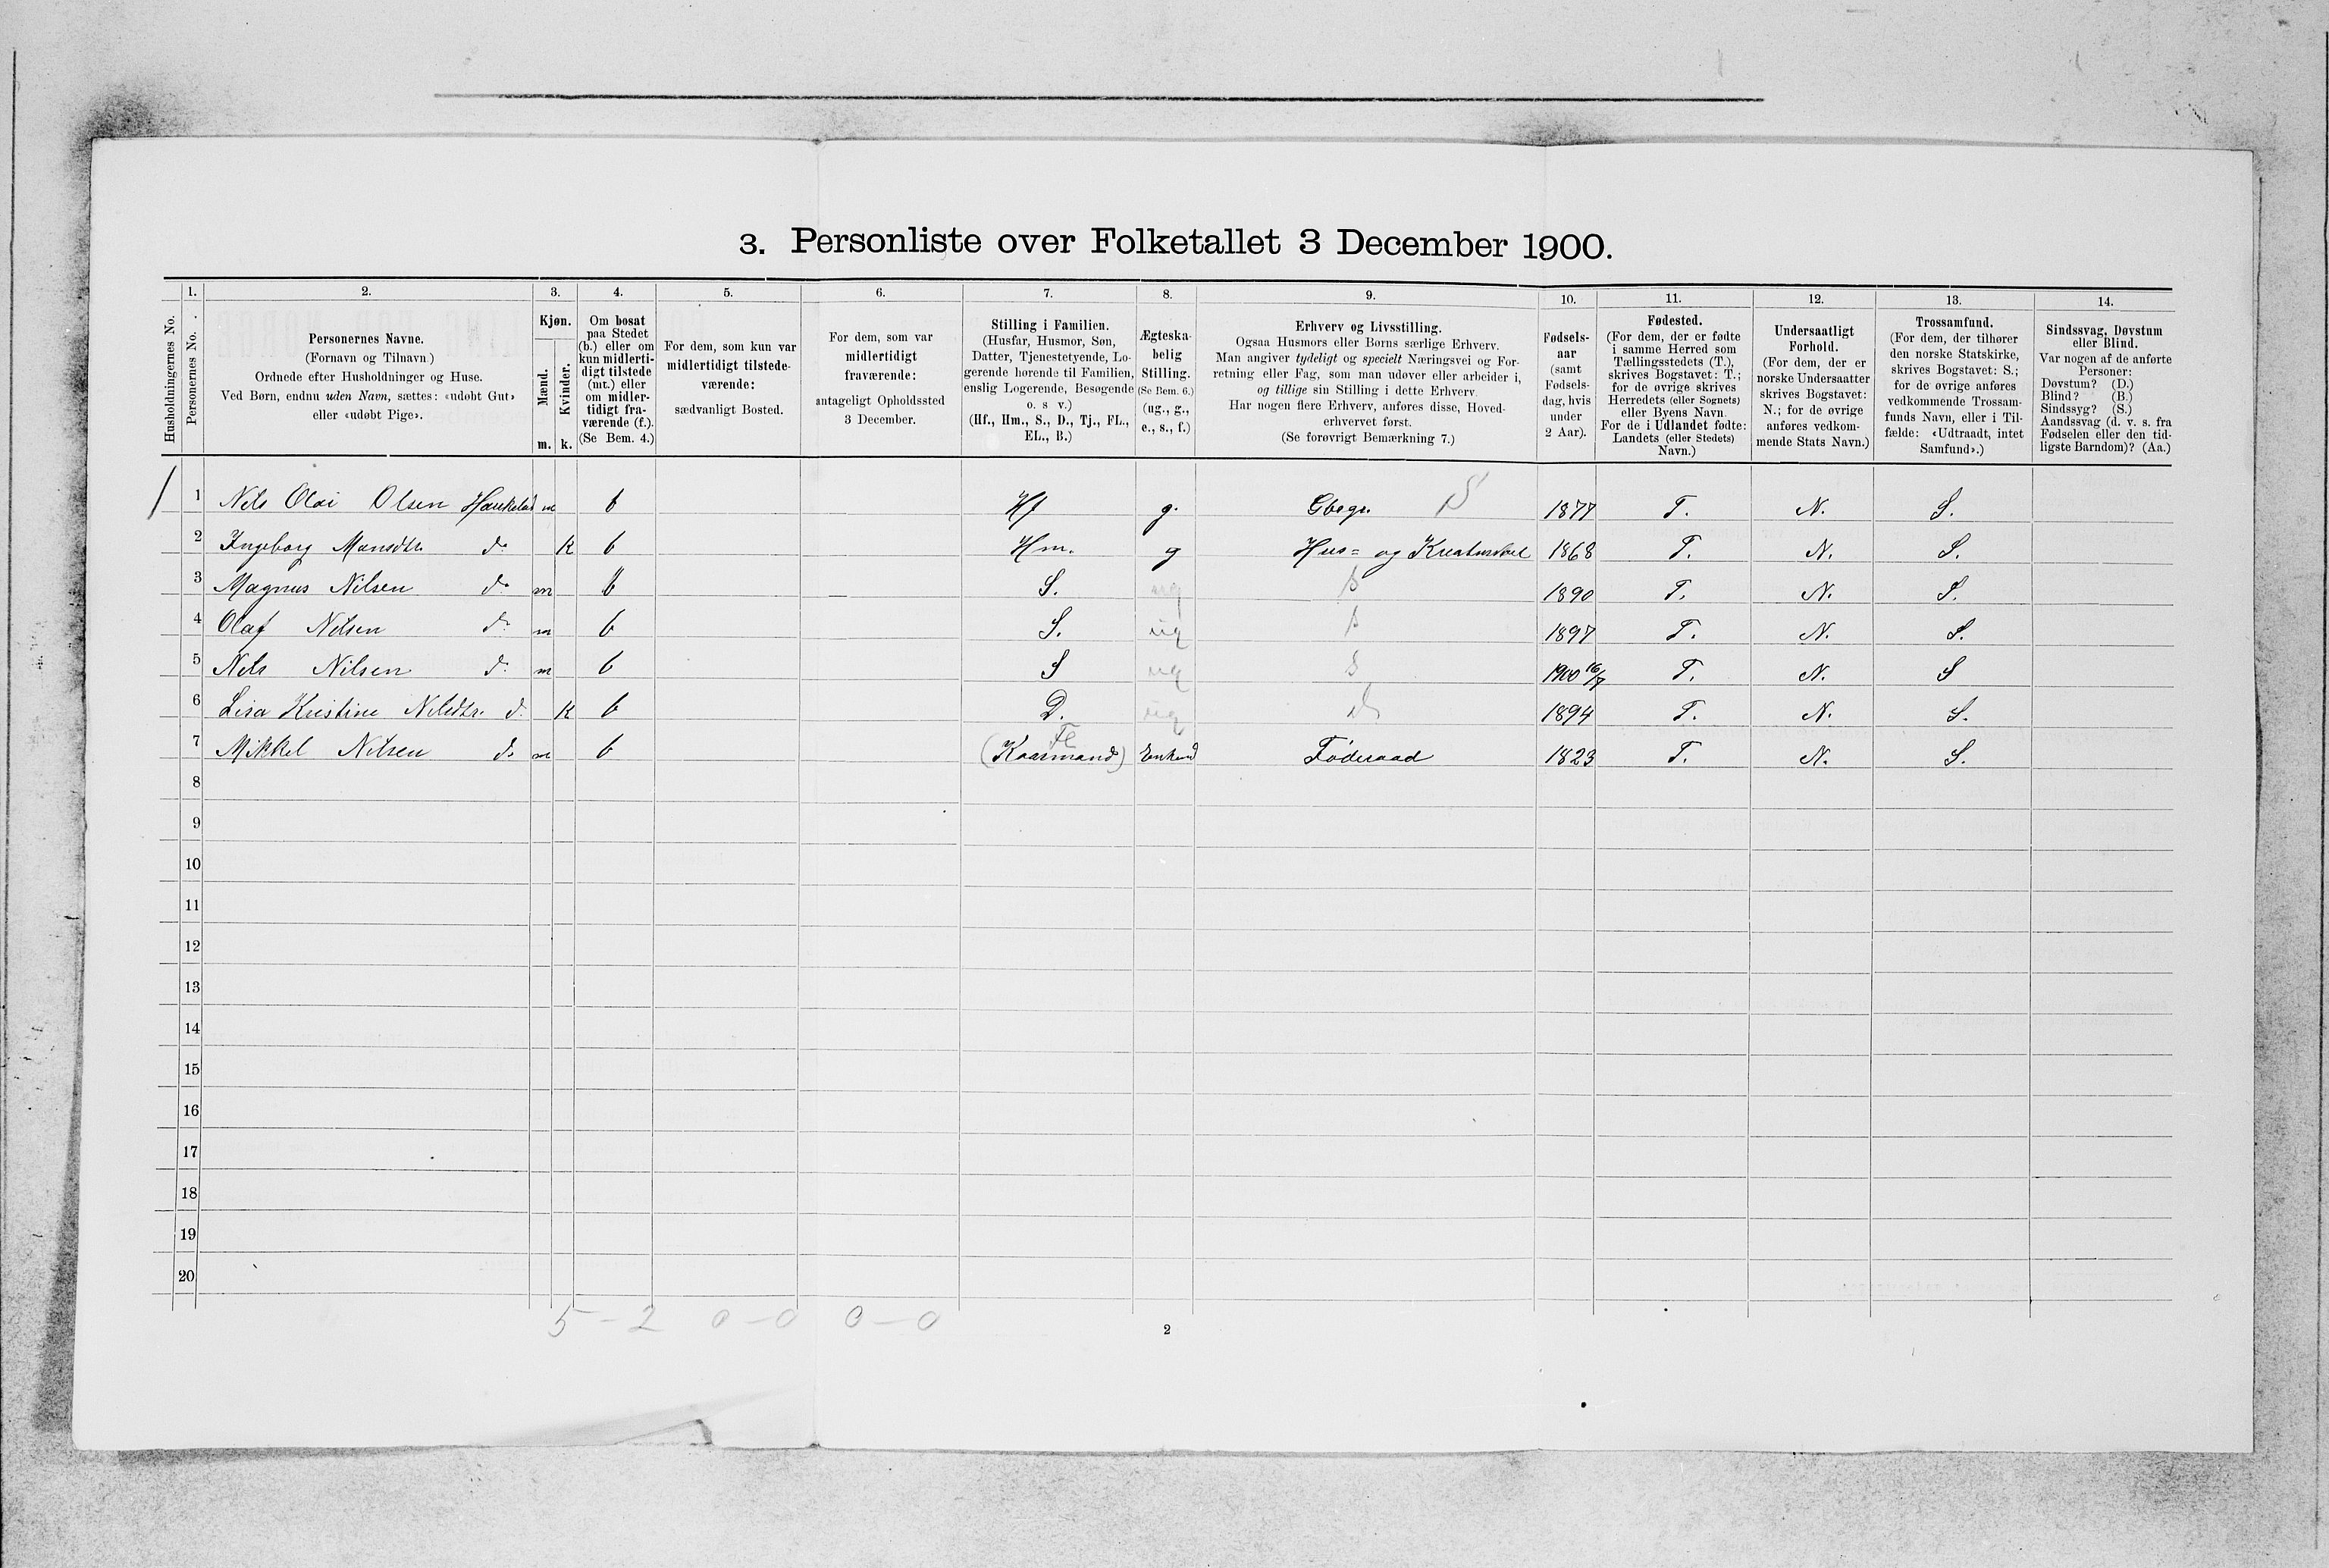 3. Personliste over Folketallet 3 December 1900.
Husholdningernes No.
1. Personernes No.
2. Personernes Navne.
(Fornavn og Tilnavn.)
Ordnede efter Husholdninger og Huse.
Ved Børn, endnu uden Navn, sættes: «udøbt Gut»
eller «udøbt Pige».
3. Kjøn.
Mænd. m.
Kvinder. k.
4. Om bosat
paa Stedet
(b.) eller om
kun midlerti-
digt tilstede
(mt.) eller
om midler-
tidigt fra-
værende (f.).
(Se Bem. 4.)
5. For dem, som kun var
midlertidigt tilstede-
værende:
sædvanligt Bosted.
6. For dem, som var
midlertidigt
fraværende:
antageligt Opholdssted
3 December.
7. Stilling i Familien.
(Husfar, Husmor, Søn,
Datter, Tjenestetyende, Lo-
gerende hørende til Familien,
enslig Logerende, Besøgende
o. s v.)
(Hf., Hm., S., D., Tj., FL.,
EL., B.)
8. Ægteska-
belig
Stilling.
(Se Bem. 6.)
(ug., g.,
e., s., f.)
9. Erhverv og Livsstilling.
Ogsaa Husmors eller Børns særlige Erhverv.
Man angiver tydeligt og specielt Næringsvei og For-
retning eller Fag, som man udøver eller arbeider i,
og tillige sin Stilling i dette Erhverv.
Har nogen flere Erhverv, anføres disse, Hoved-
erhvervet først.
(Se forøvrigt Bemærkning 7.)
10. Fødsels-
aar
(samt
Fødsels-
dag, hvis
under
2 Aar).
11. Fødested.
(For dem, der er fødte
i samme Herred som
Tællingsstedets (T.),
skrives Bogstavet: T.;
for de øvrige skrives
Herredets (eller Sognets)
eller Byens Navn.
For de i Udlandet fødte:
Landets (eller Stedets)
Navn.)
12. Undersaatligt
Forhold.
(For dem, der er
norske Undersaatter
skrives Bogstavet:
N.; for de øvrige
anføres vedkom-
mende Stats Navn.)
13. Trossamfund.
(For dem, der tilhører
den norske Statskirke,
skrives Bogstavet: S.;
for de øvrige anføres
vedkommende Trossam-
funds Navn, eller i Til-
fælde: «Udtraadt, intet
Samfund».)
14. Sindssvag, Døvstum
eller Blind.
Var nogen af de anførte
Personer:
Døvstum? (D.)
Blind? (B.)
Sindssyg? (S.)
Aandssvag (d. v. s. fra
Fødselen eller den tid-
ligste Barndom)? (Aa.)
1 Nels Olai Olsen m b Hf g. Gbrgr. 1877 T. N. S.
2 Ingeborg Mansdtr. do k b Hm. g Hus= og Kreaturstel 1868 T. N. S.
3 Magnus Nilsen do m b S. ug s 1890 T. N. S.
4 Olaf Nilsen do m b S. ug s 1897 T. N. S.
5 Nels Nilsen do m b S ug s 1900 16/7 T. N. S
6 Lisa Kristine Nilsdtr. do k b D. ug d 1894 T. N. S.
7 Mikkel Nilsen do m b Fl (Kaarmand) Enkem Føderaad 1823 T. N. S.
8
9
10
11
12
13
14
15
16
17
18
19
20
5 - 2 0 - 0 0 - 0
2